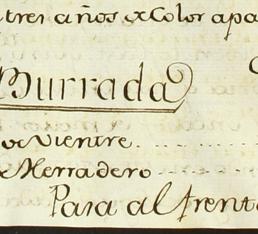 tres años y Color apa
Burrada
de Vientre
de Herradero
Para al frente